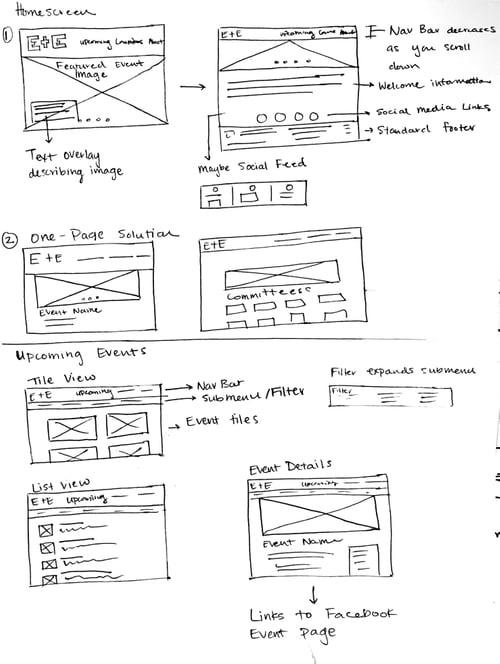 Homescreen
①
E+E Upcoming Committees About
Featured Event
Image
Text overlay
describing image
E+E Upcoming Comm About
Nav Bar decreases
as you scroll
down
Welcome information
Social media Links
Standard footer
Maybe Social Feed
② One-Page Solution
E+E
Event Name
E+E
Committees
Upcoming Events
Tile View
E+E Upcoming
Nav Bar
Submenu/Filter
Event tiles
Filter expands submenu
Filter
List View
E+E Upcoming
Event Details
E+E Upcoming
Event Name
Links to Facebook
Event Page